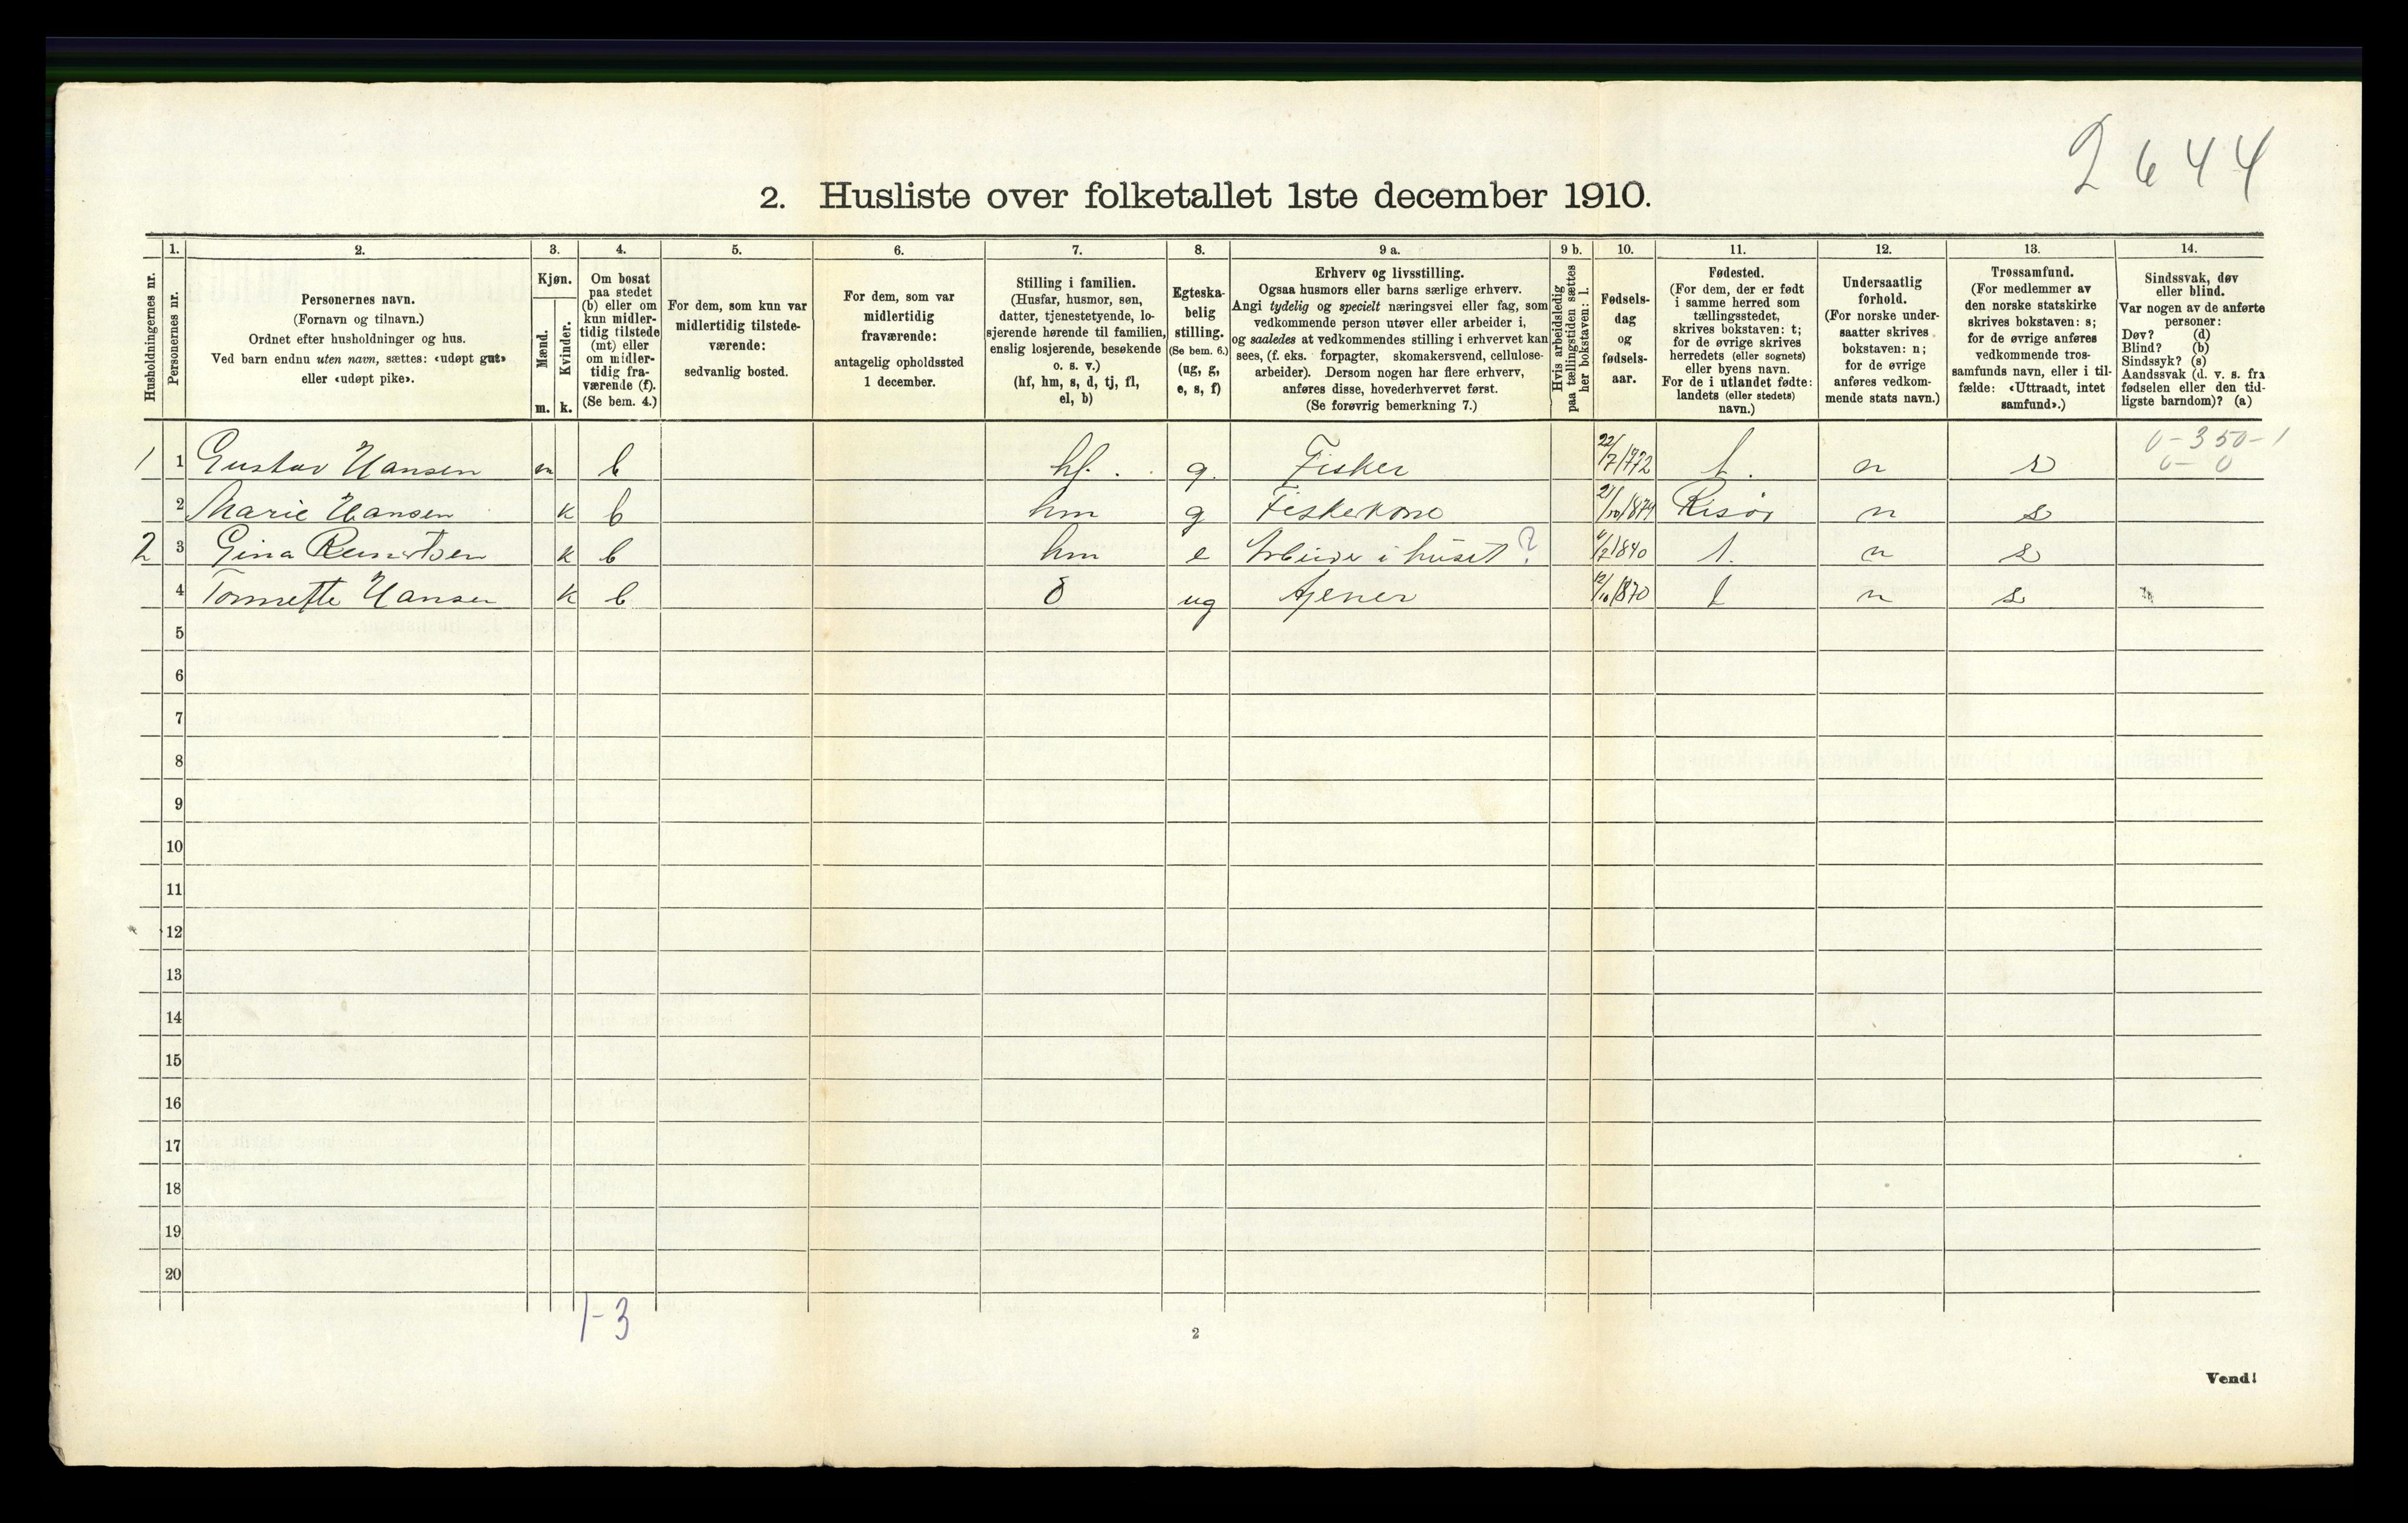 2644
2. Husliste over folketallet 1ste december 1910.
Husholdningernes nr.
1.
Personernes nr.
2.
Personernes navn.
(Fornavn og tilnavn.)
Ordnet efter husholdninger og hus.
Ved barn endnu uten navn, sættes: «udøpt gut»
eller «udøpt pike».
3.
Kjøn.
Mænd.
Kvinder.
m. k.
4.
Om bosat
paa stedet
(b) eller om
kun midler-
tidig tilstede
(mt) eller
om midler-
tidig fra-
værende (f).
(Se bem. 4.)
5.
For dem, som kun var
midlertidig tilstede-
værende:
sedvanlig bosted.
6.
For dem, som var
midlertidig
fraværende:
antagelig opholdssted
1 december.
7.
Stilling i familien.
(Husfar, husmor, søn,
datter, tjenestetyende, lo-
sjerende hørende til familien,
enslig losjerende, besøkende
o. s. v.)
(hf, hm, s, d, tj, fl,
el, b)
8.
Egteska-
belig
stilling.
(Se bem. 6.)
(ug, g,
e, s, f)
9 a.
Erhverv og livsstilling.
Ogsaa husmors eller barns særlige erhverv.
Angi tydelig og specielt næringsvei eller fag, som
vedkommende person utøver eller arbeider i,
og saaledes at vedkommendes stilling i erhvervet kan
sees, (f. eks. forpagter, skomakersvend, cellulose-
arbeider). Dersom nogen har flere erhverv,
anføres disse, hovederhvervet først.
(Se forøvrig bemerkning 7.)
9 b.
Hvis arbeidsledig
paa tællingstiden sættes
her bokstaven: l.
10.
Fødsels-
dag
og
fødsels-
aar.
11.
Fødested.
(For dem, der er født
i samme herred som
tællingsstedet,
skrives bokstaven: t;
for de øvrige skrives
herredets (eller sognets)
eller byens navn.
For de i utlandet fødte:
landets (eller stedets)
navn.)
12.
Undersaatlig
forhold.
(For norske under-
saatter skrives
bokstaven: n;
for de øvrige
anføres vedkom-
mende stats navn.)
13.
Trossamfund.
(For medlemmer av
den norske statskirke
skrives bokstaven: s;
for de øvrige anføres
vedkommende tros-
samfunds navn, eller i til-
fælde: «Uttraadt, intet
samfund».)
14.
Sindssvak, døv
eller blind.
Var nogen av de anførte
personer:
Døv? (d)
Blind? (b)
Sindssyk? (s)
Aandssvak (d. v. s. fra
fødselen eller den tid-
ligste barndom)? (a)
1 1 Gustav Hansen m b hf. g. Fisker 22/7 1872 t. n s 0-350-1
0-0
2 Marie Hansen k b hm g Fiskerkone 27/10 1874 Risør n s
2 3 Gina k b hm e Arbeider i huset ? 1840 t. n s
4 Tomette Hansen k b d ug tjener 12/10 1870 t n s
5
6
7
8
9
10
11
12
13
14
15
16
17
18
19
20
1-3
2
Vend!